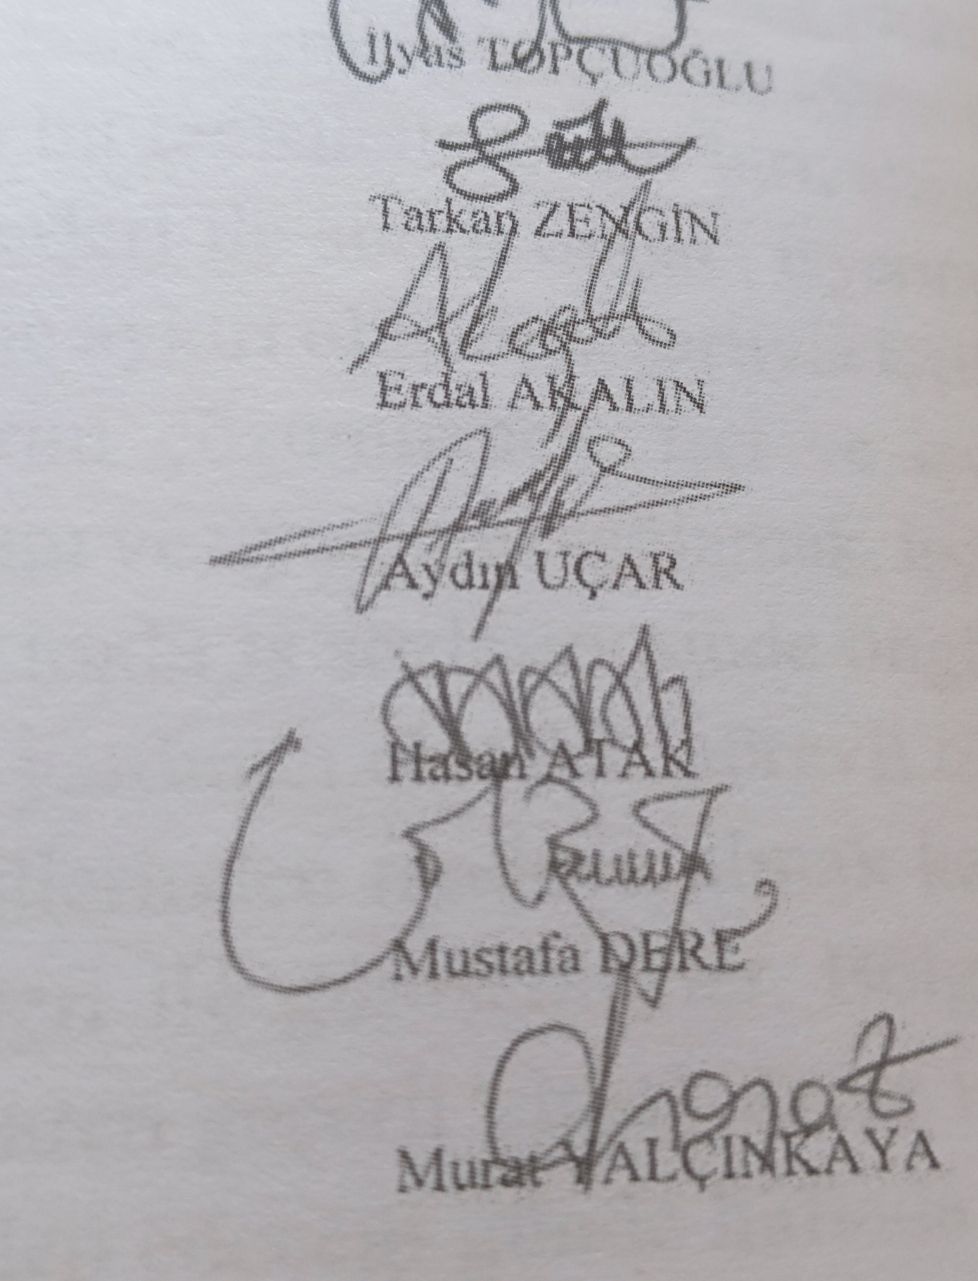 İlyas TOPÇUOĞLU
Tarkan ZENGİN
Erdal AKALIN
Aydın UÇAR
Hasan ATAK
Mustafa DERE
Murat YALÇINKAYA